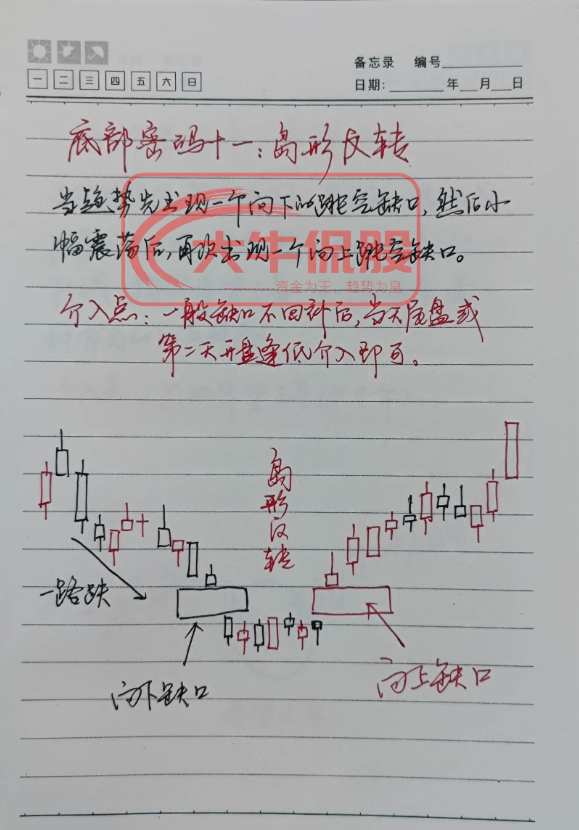 备忘录 编号
一 二 三 四 五 六 日
日期: 年 月 日
底部密码十一:岛形反转
当趋势先出现一个向下的跳空缺口,然后小
幅震荡后,再次出现一个向上跳空缺口。
犬牛侃股
资金为王,趋势为皇
介入点:一般缺口不回补后,当天尾盘或
第二天开盘逢低介入即可。
岛形反转
一路跌
向下缺口
向上缺口